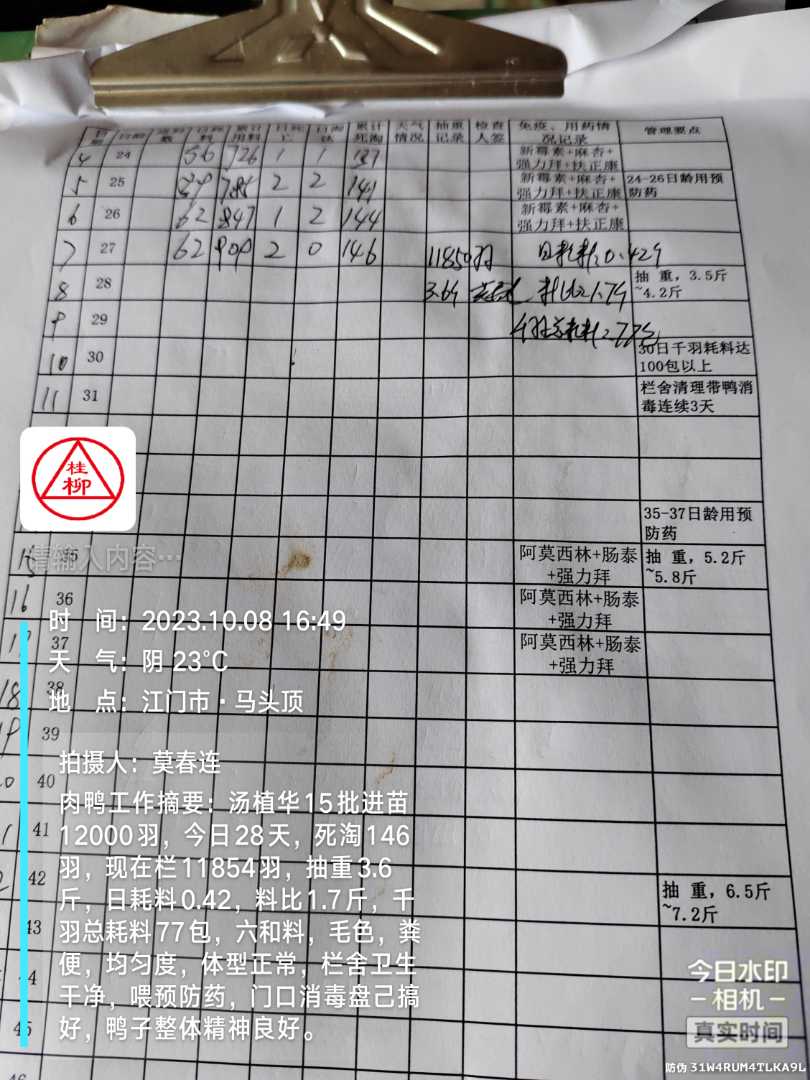 日龄
累计
用料
日死
亡
日淘
汰
累计
死淘
天气
情况
抽重
记录
检查
人签
免疫、用药情
况记录
管理要点
4 24 56 726 1 1 137 新霉素+麻杏+
强力拜+扶正康
5 25 2 2 141 新霉素+麻杏+
强力拜+扶正康
24-26日龄用预
防药
6 26 62 847 1 2 144 新霉素+麻杏+
强力拜+扶正康
7 27 62 909 2 0 146 11850羽 日耗料:0.429
8 28 抽 重，3.5斤
~4.2斤
9 29
10 30 30日千羽耗料达
100包以上
11 31 栏舍清理带鸭消
毒连续3天
桂
柳
35-37日龄用预
防药
请输入内容…
15 35 阿莫西林+肠泰
+强力拜
抽 重，5.2斤
~5.8斤
16 36 阿莫西林+肠泰
+强力拜
37 阿莫西林+肠泰
+强力拜
时 间：2023.10.08 16:49
天 气：阴 23℃
18 38
地 点：江门市·马头顶
39
拍摄人：莫春连
40
肉鸭工作摘要：汤植华15批进苗
12000羽，今日28天，死淘146
羽，现在栏11854羽，抽重3.6
斤，日耗料0.42，料比1.7斤，千
羽总耗料77包，六和料，毛色，粪
便，均匀度，体型正常，栏舍卫生
干净，喂预防药，门口消毒盘己搞
好，鸭子整体精神良好。
41
42 抽 重，6.5斤
~7.2斤
43
44
45
46
今日水印
相机
真实时间
防伪 31W4RUM4TLKA9L